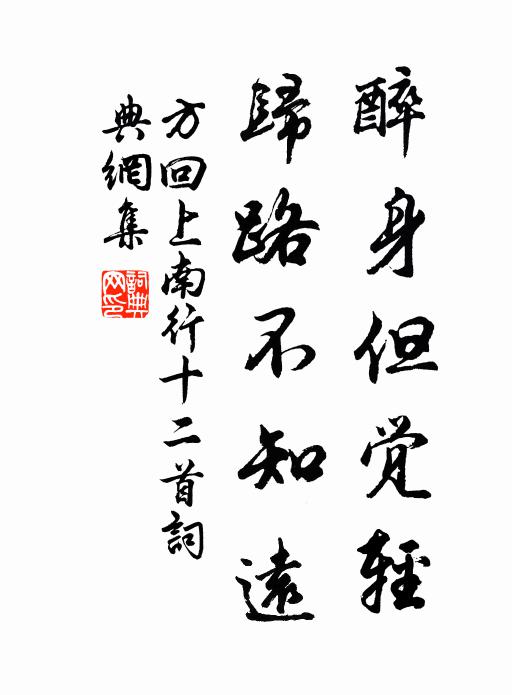 醉身但觉輕
歸路不知遠
方回上南行十二首詞
典網集
詞典网印